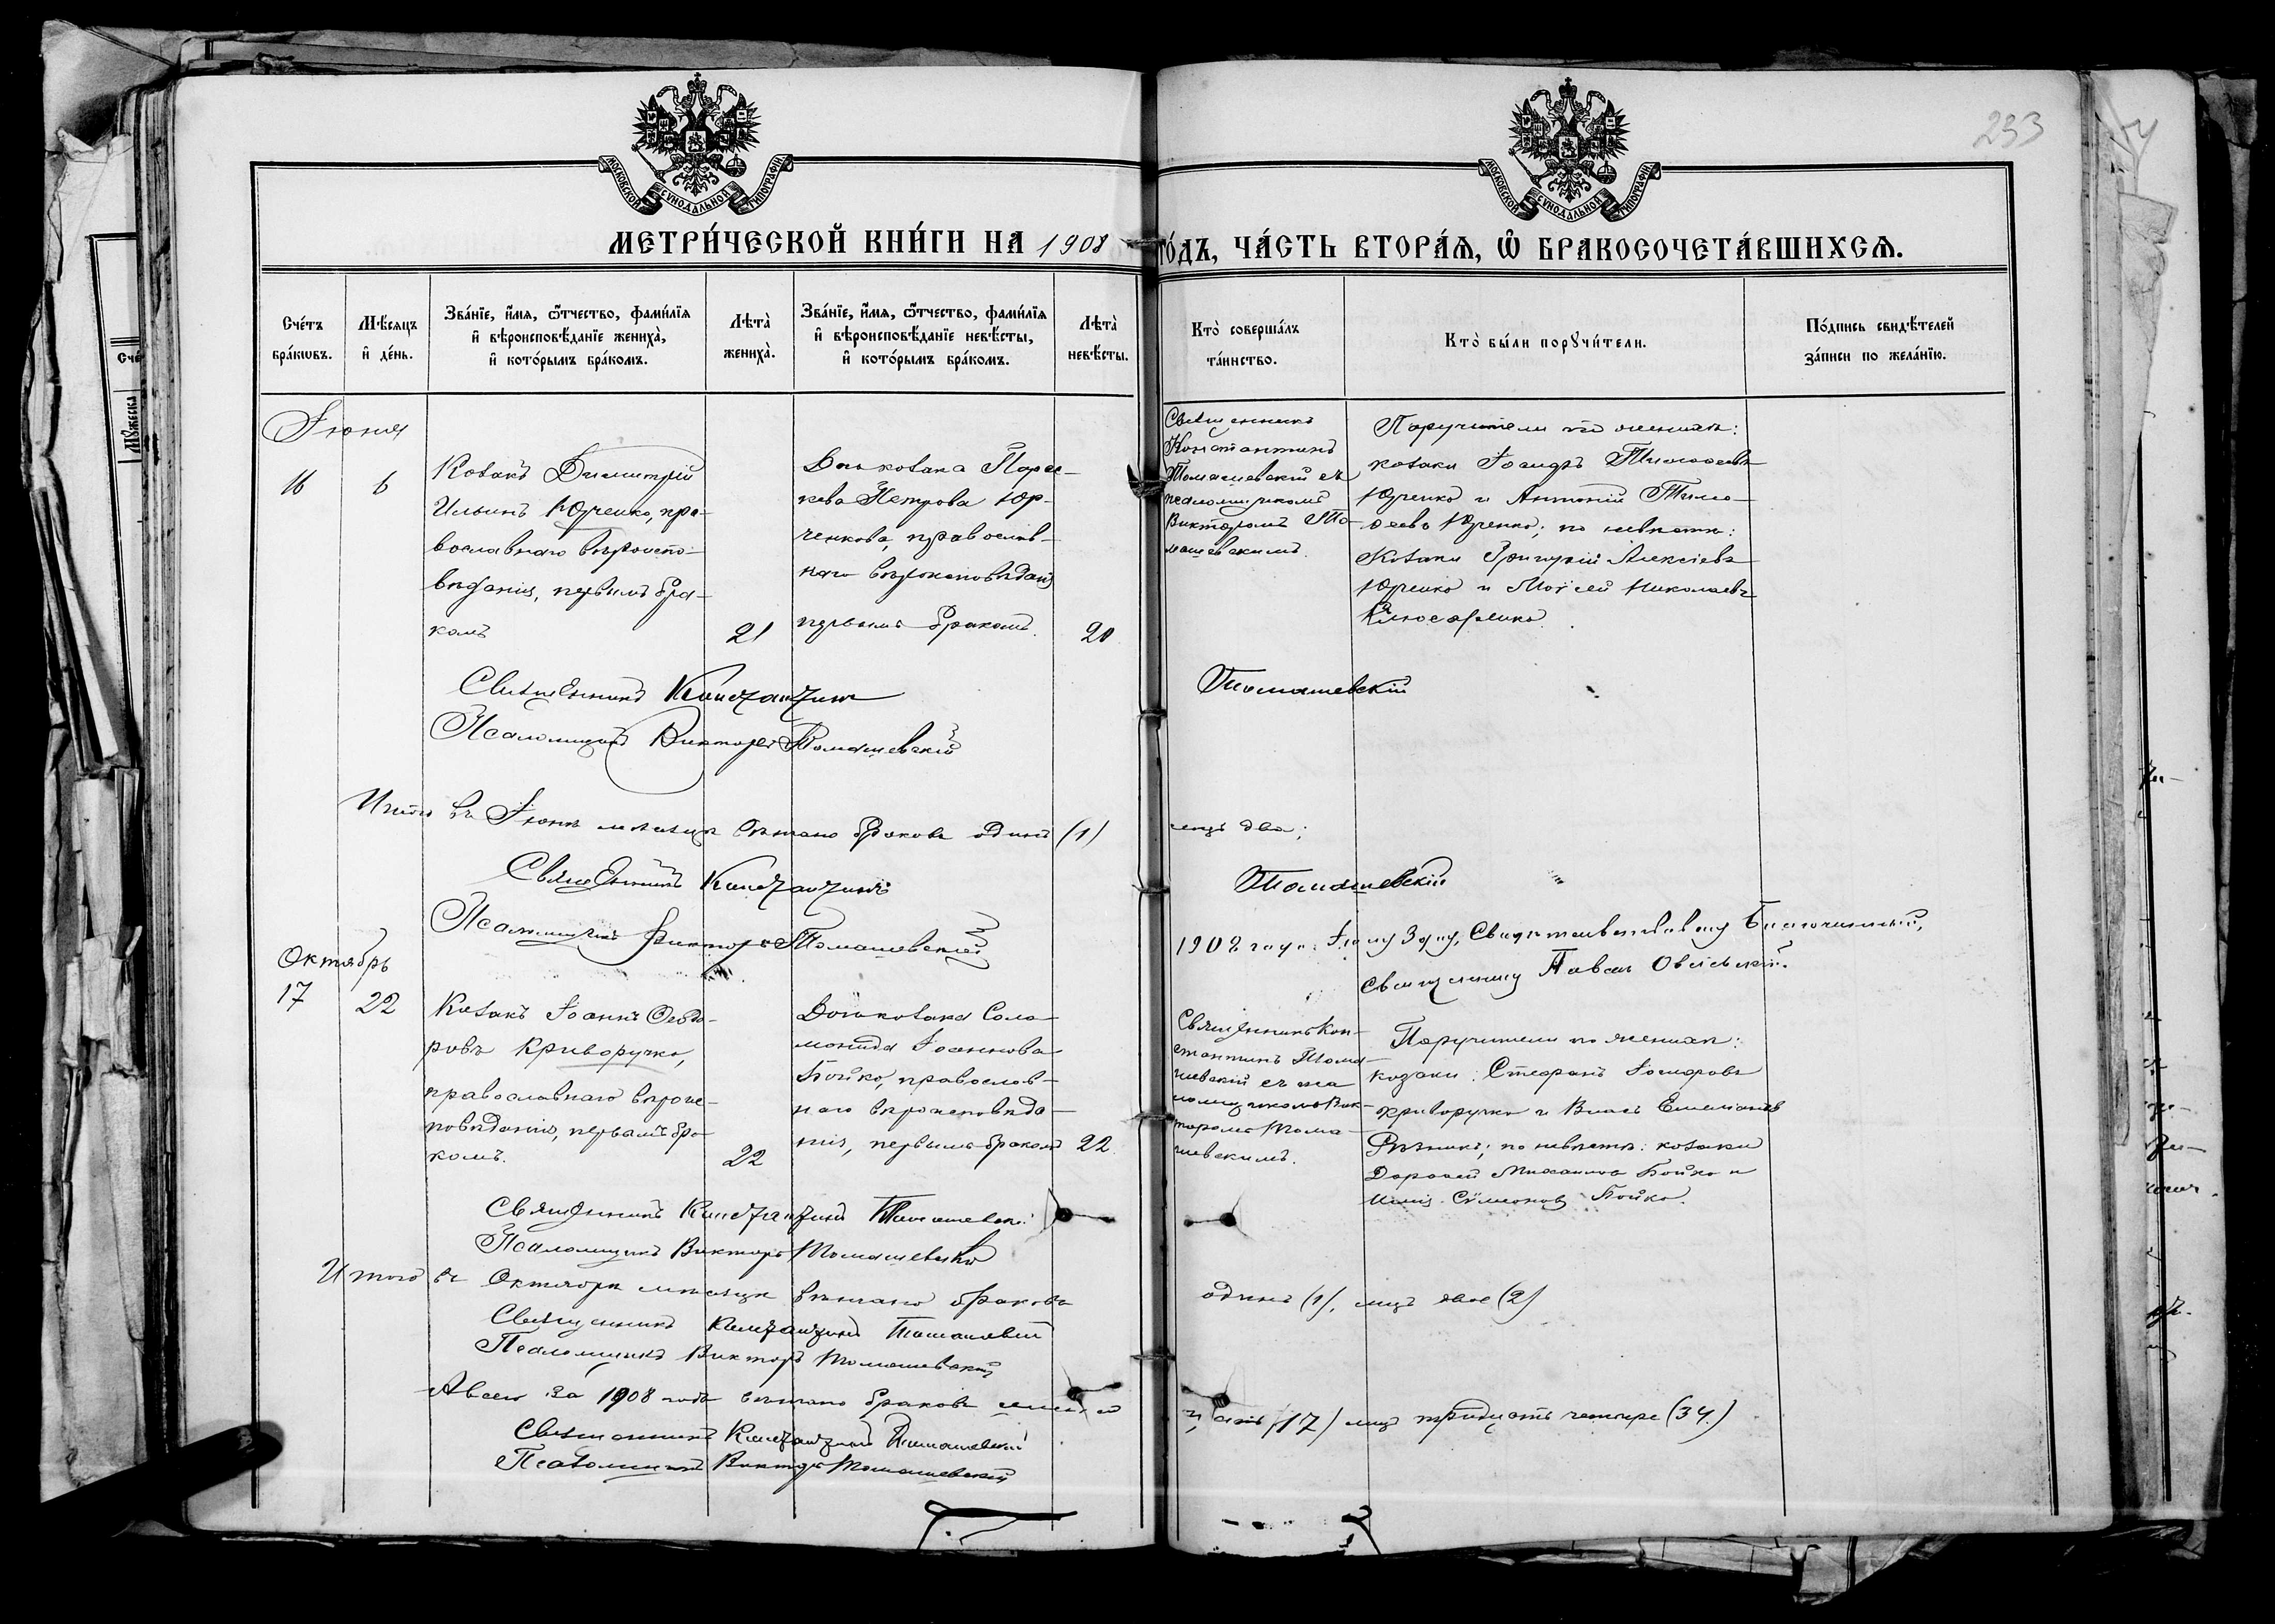 233
МОСКОВСКОЙ СѴНОДАЛЬНОЙ ТИПОГРАФІИ
МОСКОВСКОЙ СѴНОДАЛЬНОЙ ТИПОГРАФІИ
МЕТРИ́ЧЕСКОЙ КНИ́ГИ НА 1908 ГО́ДЪ, ЧА́СТЬ ВТОРА́Я, Ѡ БРАКОСОЧЕТА́ВШИХСЯ.
Сче́тъ бра́ковъ.
Мѣ́сяцъ и де́нь.
Зва́нїе, и́мя, ѻ҆́тчество, фами́лїя и вѣроисповѣ́данїе жениха̀, и кото́рымъ бра́комъ.
Лѣта̀ жениха̀.
Зва́нїе, и́мя, ѻ҆́тчество, фами́лїя и вѣроисповѣ́данїе невѣ́сты, и кото́рымъ бра́комъ.
Лѣта̀ невѣ́сты.
Кто̀ соверша́лъ та́инство.
Кто̀ бы́ли порꙋчи́тели.
По́дпись свидѣ́телей за́писи по жела́нїю.
Іюня
16
6
Козакъ Димитрій
Ильинъ Юрченко, пра-
вославнаго вѣроиспо-
вѣданія, первымъ бра-
комъ
21
Дочь козака Парас-
кева Петрова Юр-
ченкова, православ-
наго вѣроисповѣданія
первымъ бракомъ.
20
Священникъ
Константинъ
Томашевскій съ
псаломщикомъ
Викторомъ То-
машевскимъ.
Поручители по женихѣ:
козаки Тимоѳеевъ
Юрченко и Антоній Тимо-
ѳеевъ Юрченко; по невѣстѣ:
Козаки Григорій Алексѣевъ
Юрченко и Моѵсей Николаевъ
Слюсаренко.
Священникъ Константинъ Томашевскій
Псаломщикъ Викторъ Томашевскій
Итого въ Іюнѣ мѣсяцѣ вѣнчано браковъ одинъ (1) лицъ два;
Священникъ Константинъ Томашевскій
Псаломщикъ Викторъ Томашевскій
1908 года Іюля Свидѣтельствовалъ Благочинный,
Священникъ Павелъ
Октябрь
17
22
Козакъ Іоаннъ Ѳеодо-
ровъ Криворучко,
православнаго вѣроис-
повѣданія, первымъ бра-
комъ.
22
Дочь козака Соло-
монида Іоаннова
Бойко, православ-
наго вѣроисповѣда-
нія, первымъ бракомъ
22
Священникъ Кон-
стантинъ Тома-
шевскій съ пса
ломщикомъ Вик-
торомъ Тома-
шевскимъ.
Поручители по женихѣ:
козаки: Стефанъ Іосифовъ
Криворучко и Власъ Емеліановъ
Рѣзникъ; по невѣстѣ: козаки
Дороѳей Михаиловъ Бойко и
Илія Сѵмеоновъ Бойко.
Священникъ Константинъ Томашевскій
Псаломщикъ Викторъ Томашевскій
Итого въ Октябрѣ мѣсяцѣ вѣнчано браковъ одинъ (1), лицъ двое (2)
Священникъ Константинъ Томашевскій
Псаломщикъ Викторъ Томашевскій
А всего за 1908 годъ вѣнчано браковъ семнад цать (17) лицъ тридцать четыре (34)
Священникъ Константинъ Томашевскій
Псаломщикъ Викторъ Томашевскій